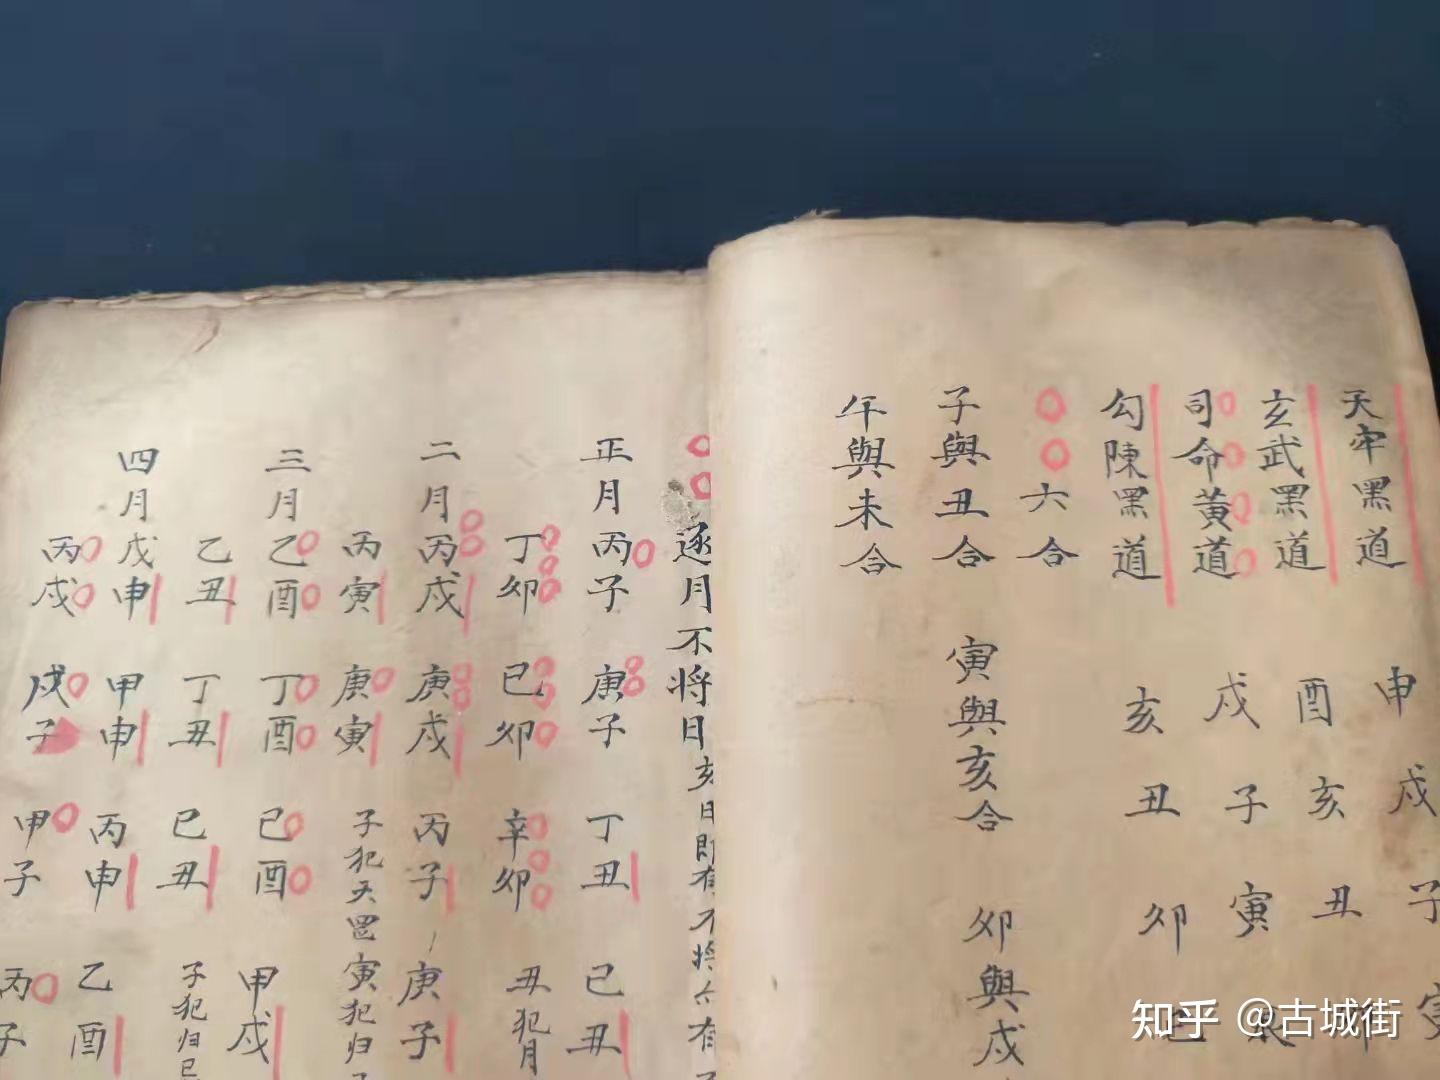 天牢黑道 申 戌 子 寅
玄武黑道 酉 亥 丑 卯
司命黄道 戌 子 寅
勾陳黑道 亥 丑 卯 巳
六合
子與丑合 寅與亥合 卯與戌
午與未合
逐月不将日 亥日即有不将亦有
正月 丙子 庚子 丁丑 己丑
丁卯 巳卯 辛卯 丑犯月
二月 丙戌 庚戌 丙子 庚子
丙寅 庚寅 子犯天罡 寅犯归
三月 乙酉 丁酉 己酉 甲戌
乙丑 丁丑 巳丑 子犯归巳
四月 戊申 甲申 丙申 乙酉
丙戌 戊子 甲子 丙子
知乎 @古城街